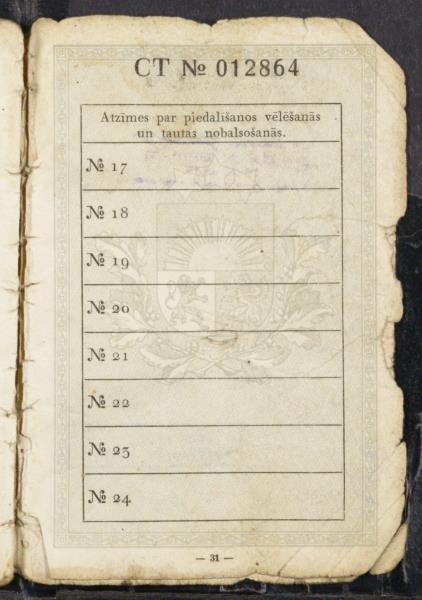 CT № 012864
Atzīmes par piedalīšanos vēlēšanās
un tautas nobalsošanās.
№ 17
№ 18
№ 19
№ 20
№ 21
№ 22
№ 23
№ 24
— 31 —